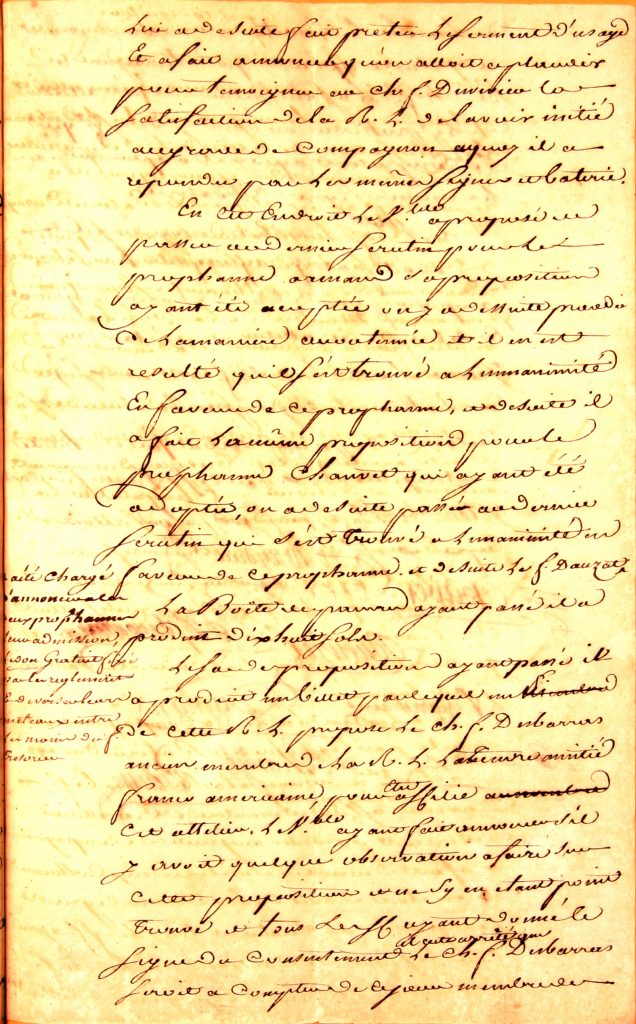 lui a de suite fait preter le serment d'usage
Et a fait annoncer qu'on alloit aplaudir
pour temoigner au ch. f. Duvivier la
satisfaction de la R. L. de l'avoir initié
au grade de Compagnon aquoy il a
repondu par les mêmes signes et baterie.
En cet Endroit le V.ble a proposé de
passer au dernier scrutin pour le
prophanne armand sa proposition
ayant été acceptée on y a de suitte procedé
de la manière accoutumée et il en est
resulté qu'il s'est trouvé a l'unanimité
En faveur de ce prophanne, et de suite il
a fait la même proposition pour le
prophanne Chauvet qui ayant été
adoptée, on a de suite passé au dernier
scrutin qui s'est trouvé a l'unanimité en
faveur de ce prophanne. et de suite le f. Dauzat
a été chargé
d'annoncer a ces
deux prophannes
leur admission
le don Gratuit fixé
par les reglement
Et de verser leurs
métaux entre
les mains du f.
Tresorier
La Boëte des pauvres ayant passé il a
produit dix huit sols.
Le sac des propositions ayant passé il
a produit un billet par lequel un membre
de cette R. L. propose le ch. f. Desbarras
ancien membre de la R. L. la sincere amitié
franco américaine, pour etre affilié
cet attelier. le V.ble ayant fait annoncer s'il
y avoit quelque observation a faire sur
cette proposition et ne s'y en etant point
trouvé et tous les ff. ayant donné le
signe du Consentement il a ete arrêté que le ch. f. Desbarras
seroit a Compter de ce jour membre de